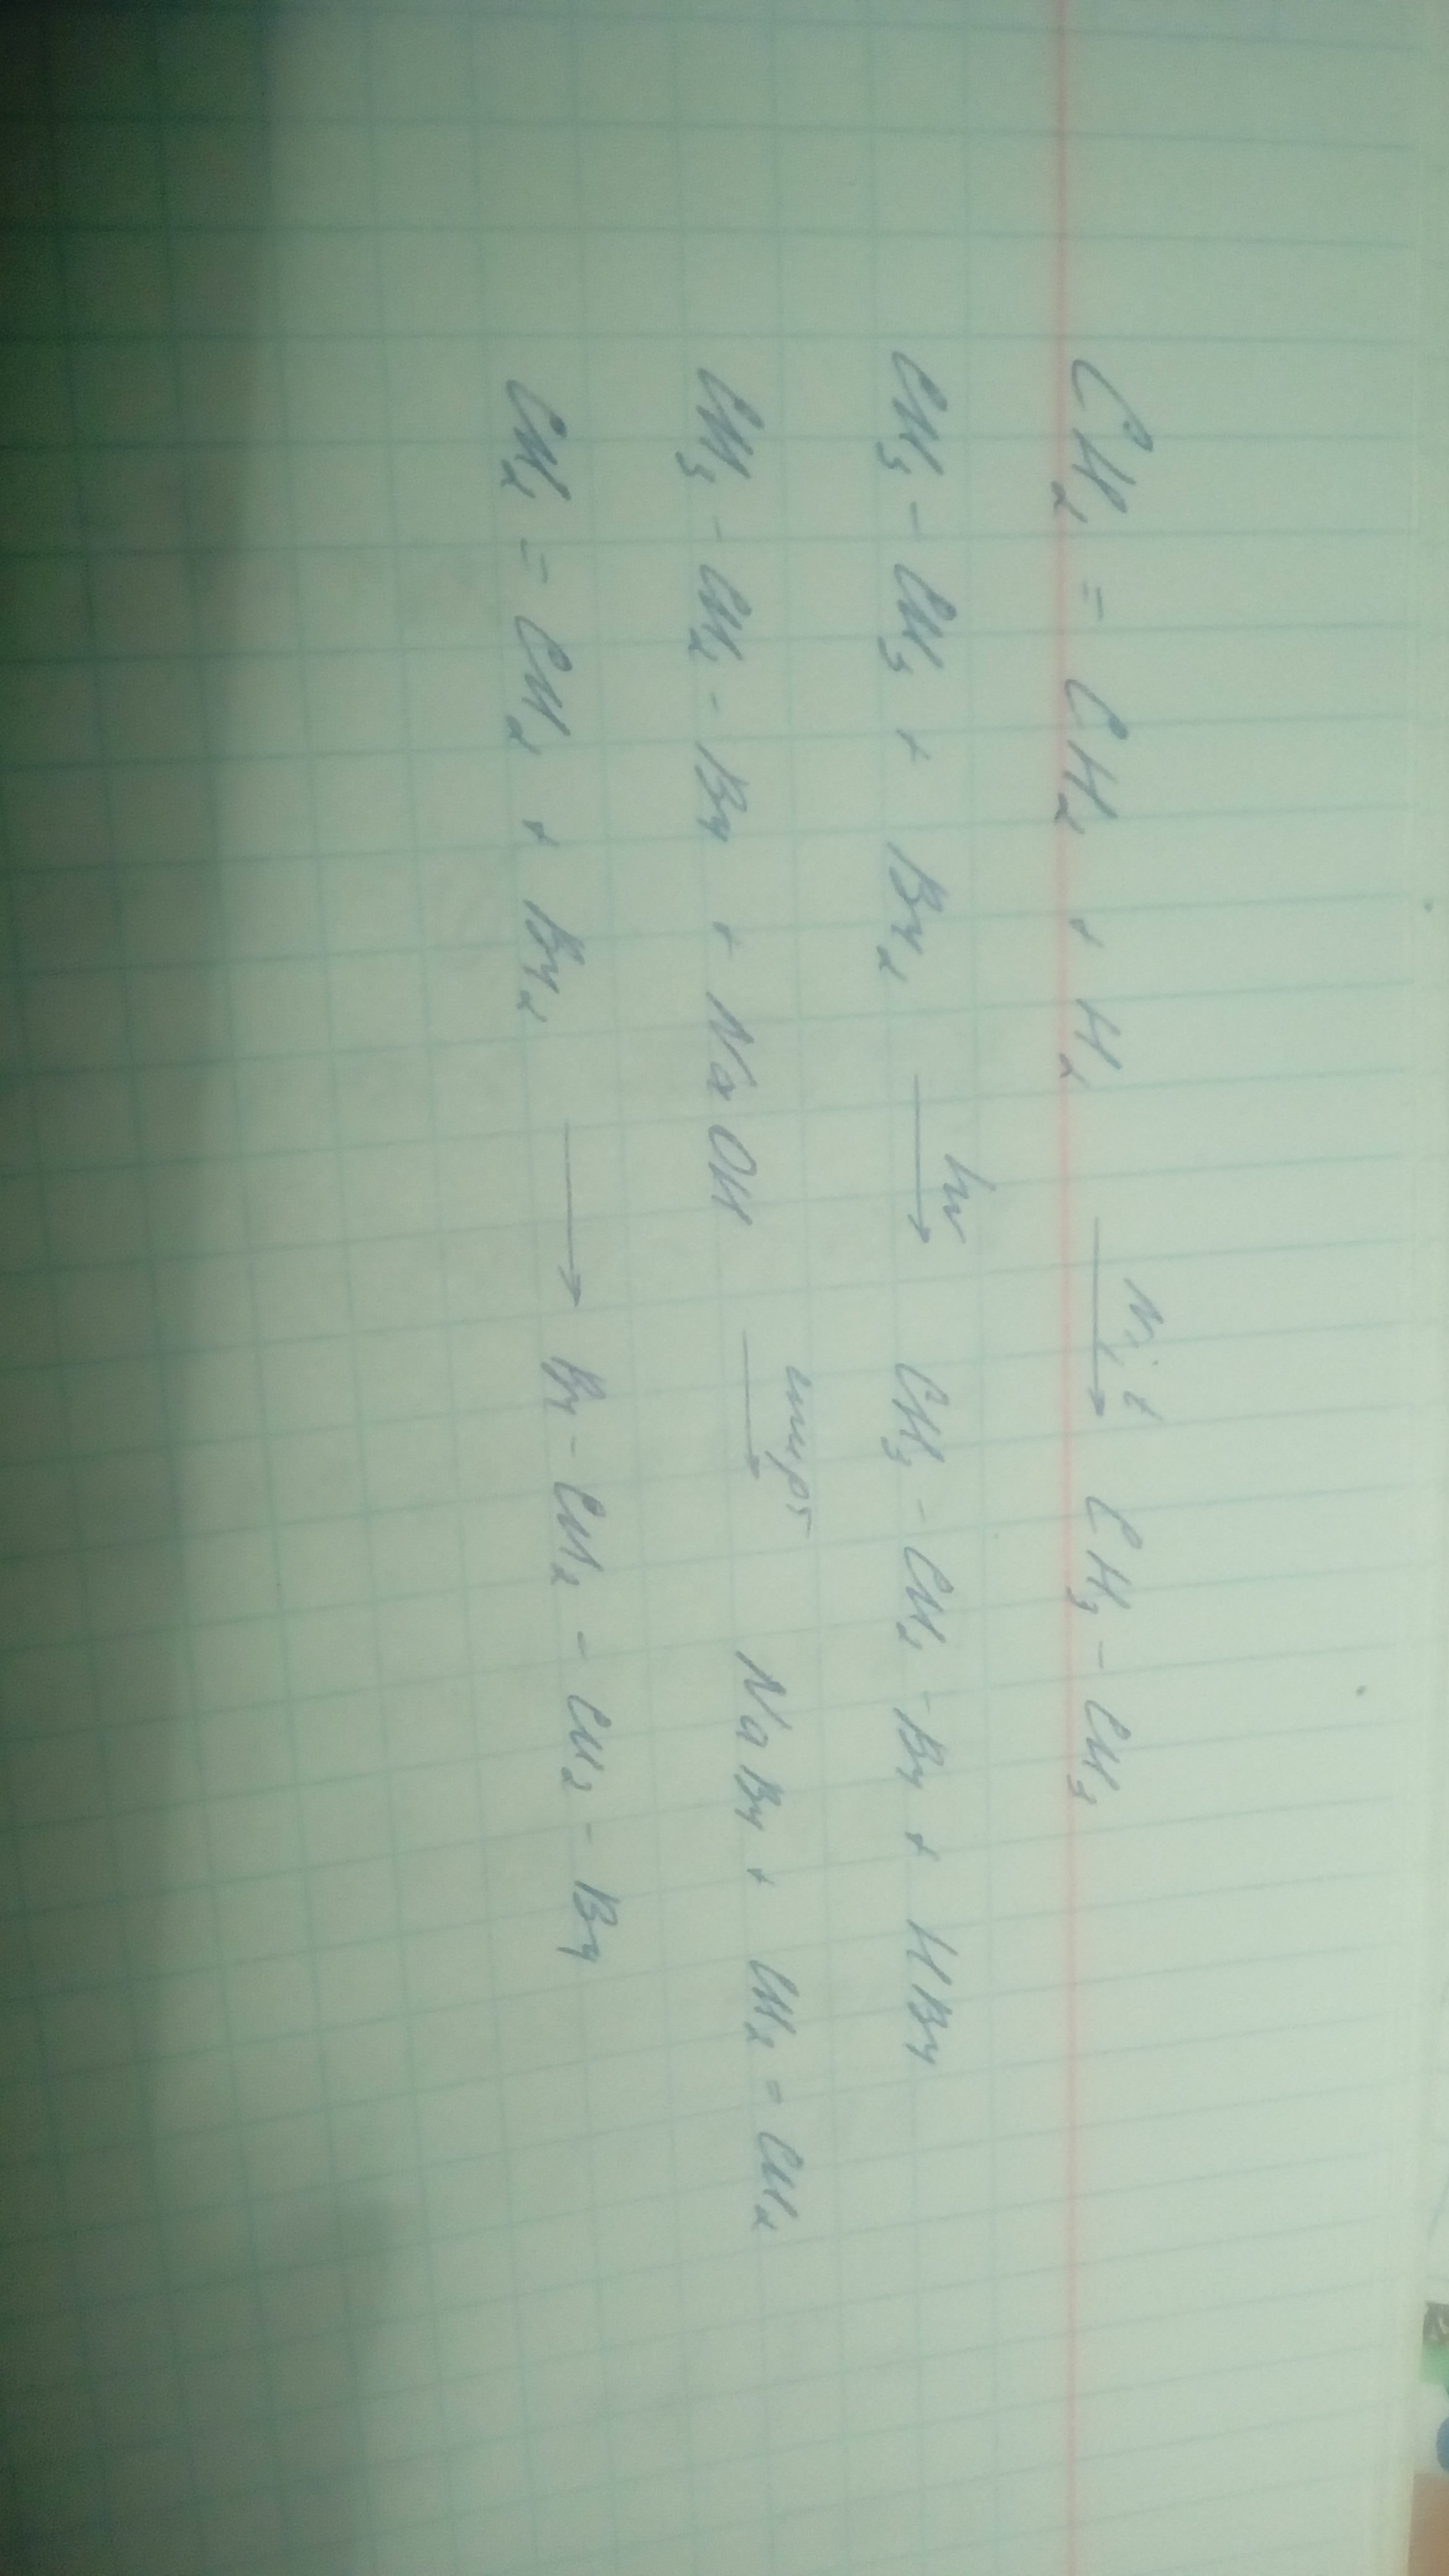 CH₂ = CH₂ + H₂ →(Ni, t) CH₃ - CH₃
CH₃ - CH₃ + Br₂ →(hν) CH₃ - CH₂ - Br + HBr
CH₃ - CH₂ - Br + NaOH →(спирт) NaBr + CH₂ = CH₂
CH₂ = CH₂ + Br₂ → Br - CH₂ - CH₂ - Br